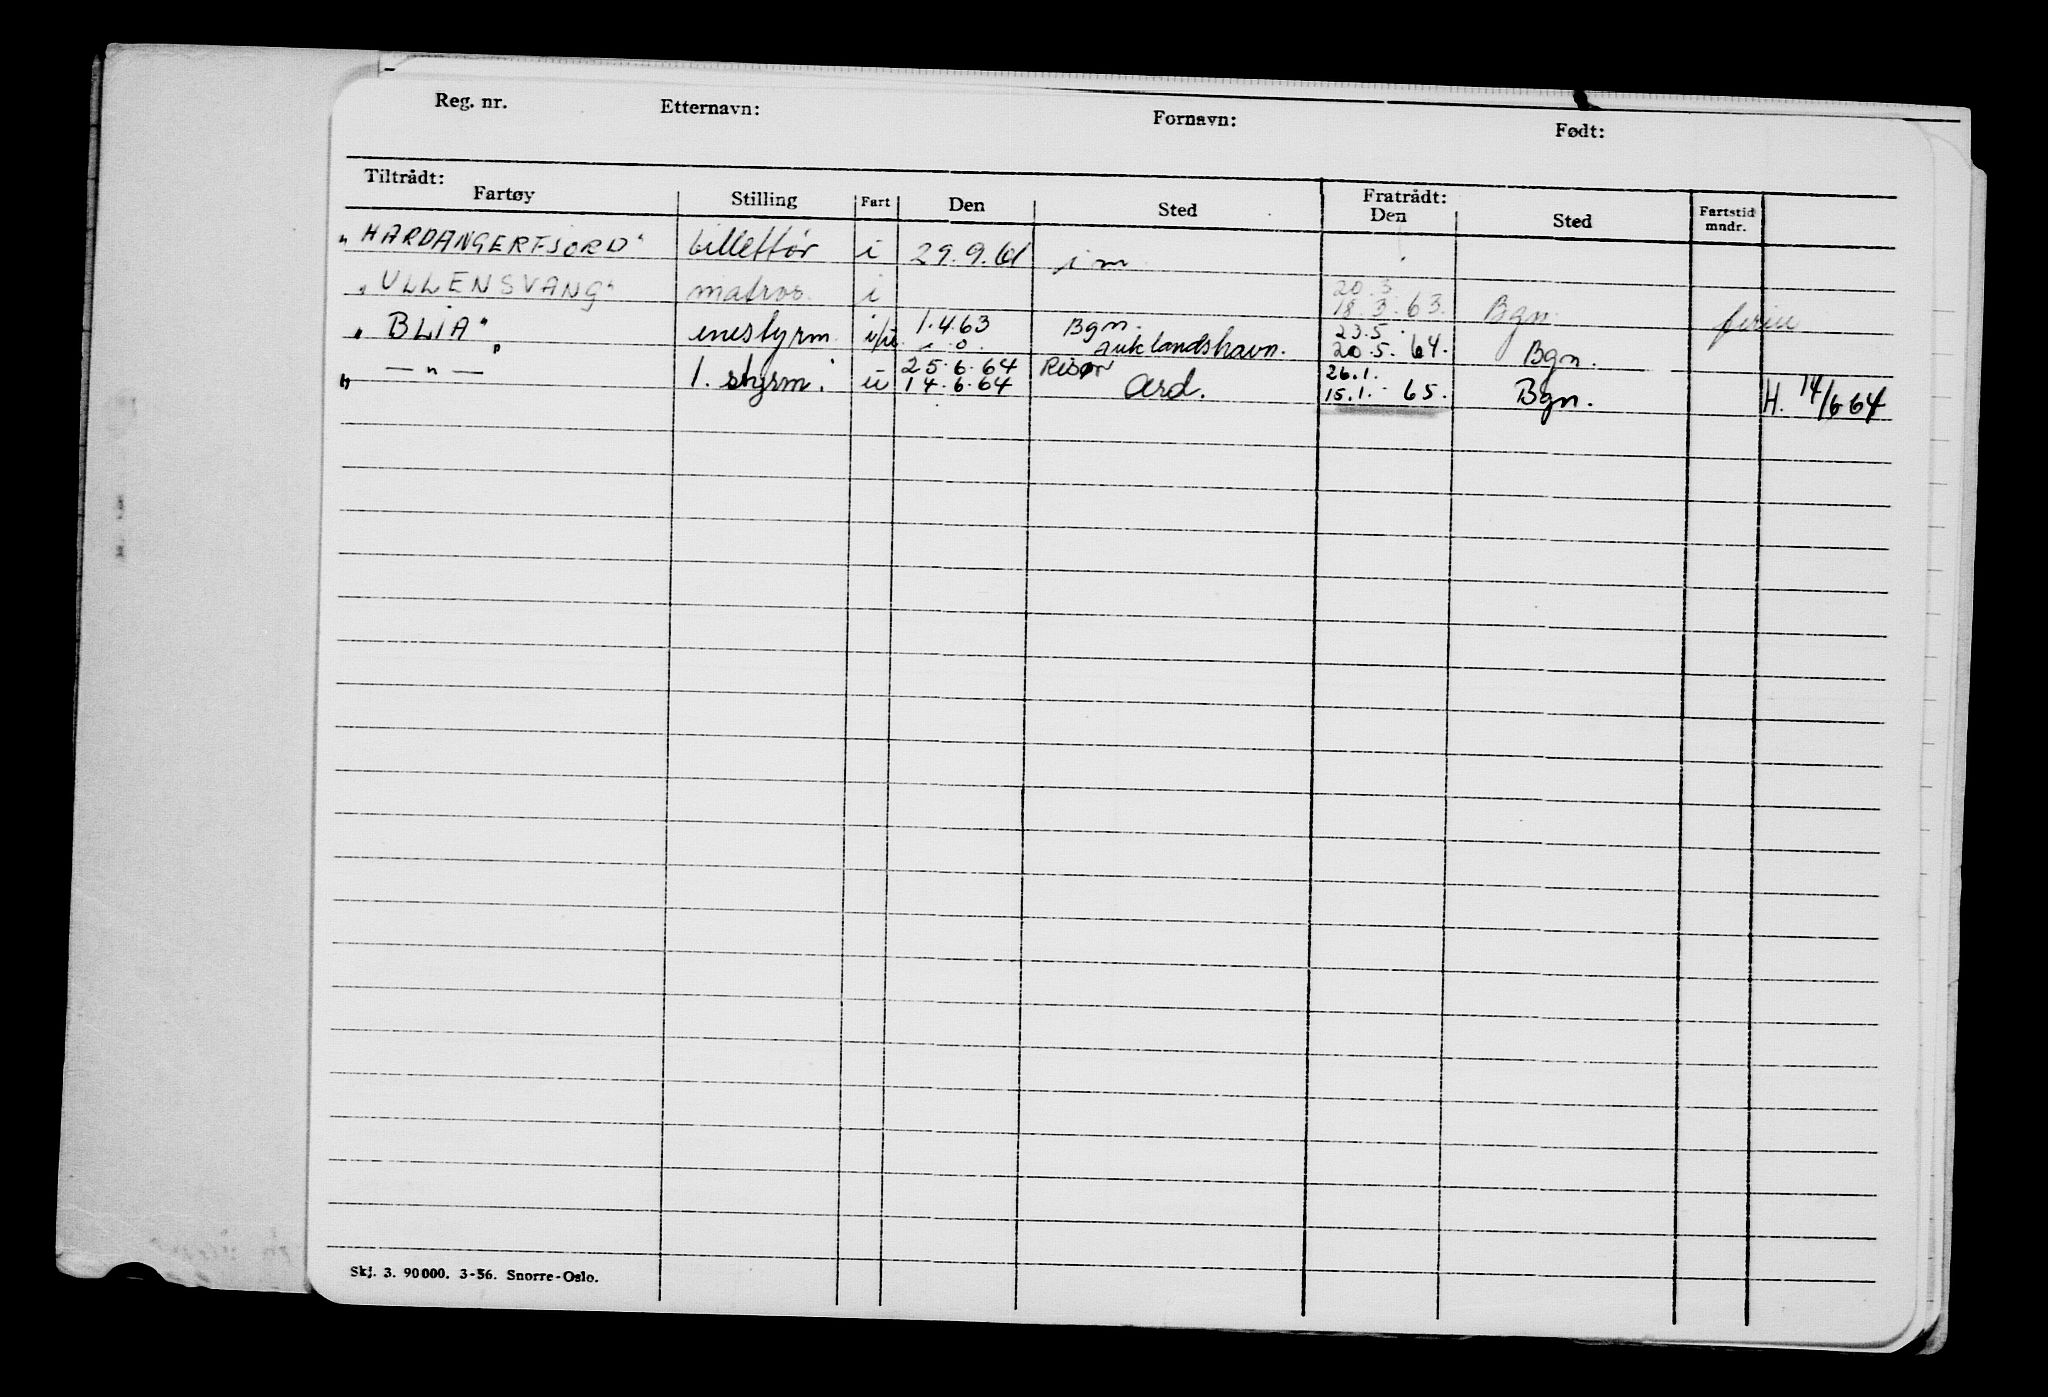 Reg. nr. Etternavn: Fornavn: Født:
Tiltrådt: Fratrådt:
Fartøy Stilling Fart Den Sted Den Sted Fartstid mndr.
"HARDANGERFJORD" billettør i 29.9.61 i m
"ULLENSVANG" matros i 20.3. 18.3.63. Bgn. ferie
"BLIA" enestyrm. 1.4.63 Bgn. Auklandshavn. 23.5. 20.5.64. Bgn.
" —"— " 1. styrm. u 25.6.64 14.6.64 Risør Ard. 26.1. 15.1. 65. Bgn. H. 14/6 64
Skj. 3. 90000. 3-56. Snorre-Oslo.